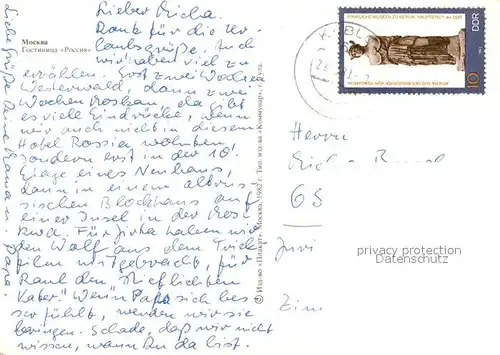 Lieber Micha.
Dank für die Ur-
laubsgrüße. Auch
wir haben viel zu
erzählen. Erst zwei Wochen
Westerwald, dann zwei
Wochen Moskau, da gibt
es viele Eindrücke, wenn
wir auch nicht in diesem
Hotel Rossia wohnten
sondern erst in der 10.
Etage eines Neubaus,
dann in einem altrus-
sischen Blockhaus auf
einer Insel in der Mos-
kwa. Für Jirka haben wir
den Wolf aus dem Trick-
film mitgebracht, für
Rant den "Stieflichten
Kater." Wenn Papa sich bes-
ser fühlt, werden wir sie
bringen. Schade, daß wir nicht
wissen, wann Du da bist.
Liebe Grüße Deine Mama u. Papa.
Москва
Гостиница «Россия»
© Изд-во «Плакат». Москва, 1982 г. Тип. изд-ва «Коммунар», г. Тула.
STAATLICHE MUSEEN ZU BERLIN HAUPTSTADT der DDR
DDR
10
Herrn
65
privacy protection
Datenschutz